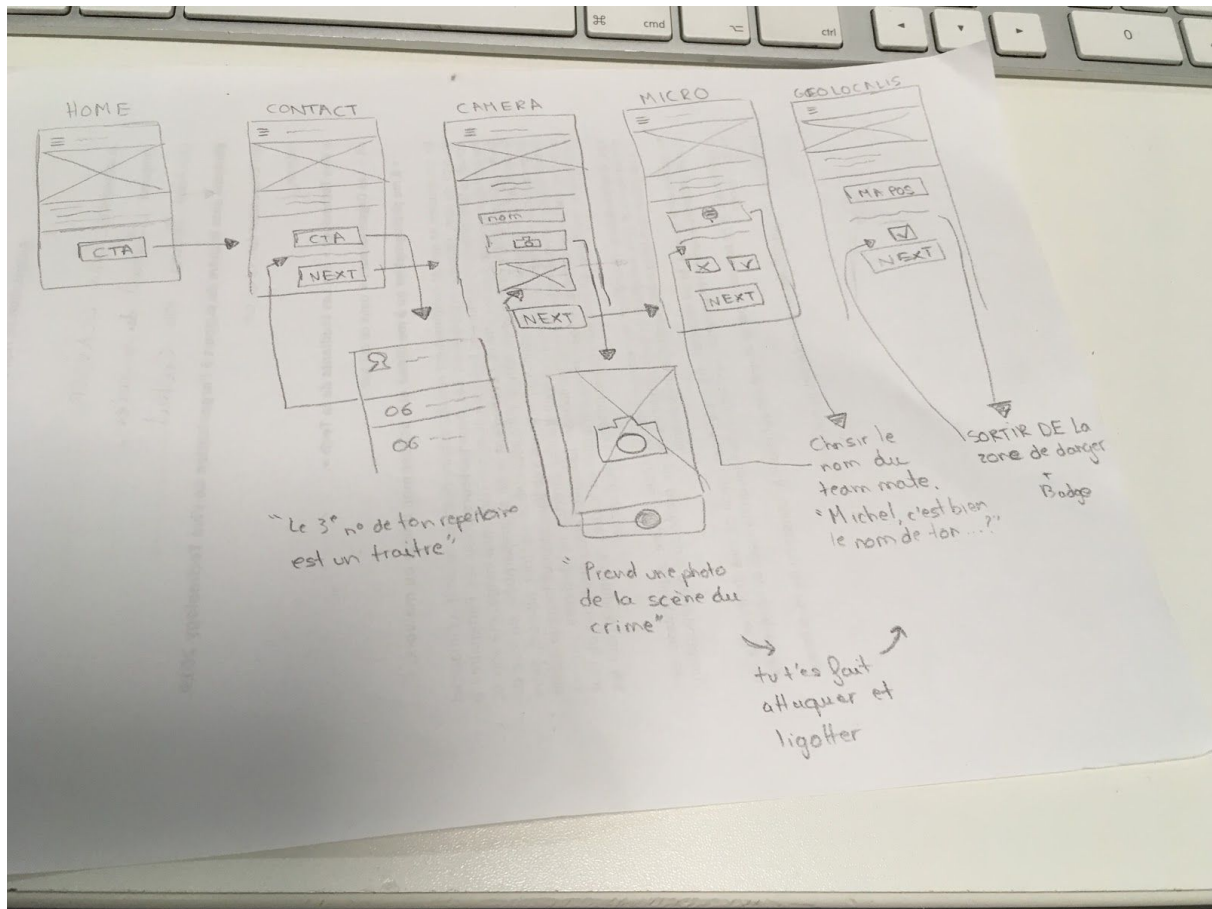 ⌘ cmd
⌥
ctrl
◄
▼
►
0
HOME
CTA
CONTACT
CTA
NEXT
06
06
"Le 3e no de ton repertoire
est un traitre"
CAMERA
nom
NEXT
"Prend une photo
de la scène du
crime"
MICRO
NEXT
Choisir le
nom du
team mate.
"Michel, c'est bien
le nom de ton...?"
tu t'es fait
attaquer et
ligotter
GEOLOCALIS
MA POS
NEXT
SORTIR DE La
zone de danger
+
Badge